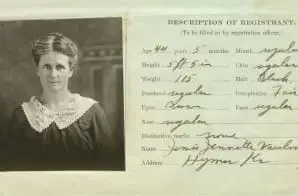 DESCRIPTION OF REGISTRANT.
(To be filled in by registration officer.)
Age 44 years 5 months Mouth regular
Height 5 ft 5 in Chin regular
Weight 115 Hair Black
Forehead regular Complexion Fair
Eyes Face regular
Nose regular
Distinctive marks none
Name Jennetta
Address Hymer Ks